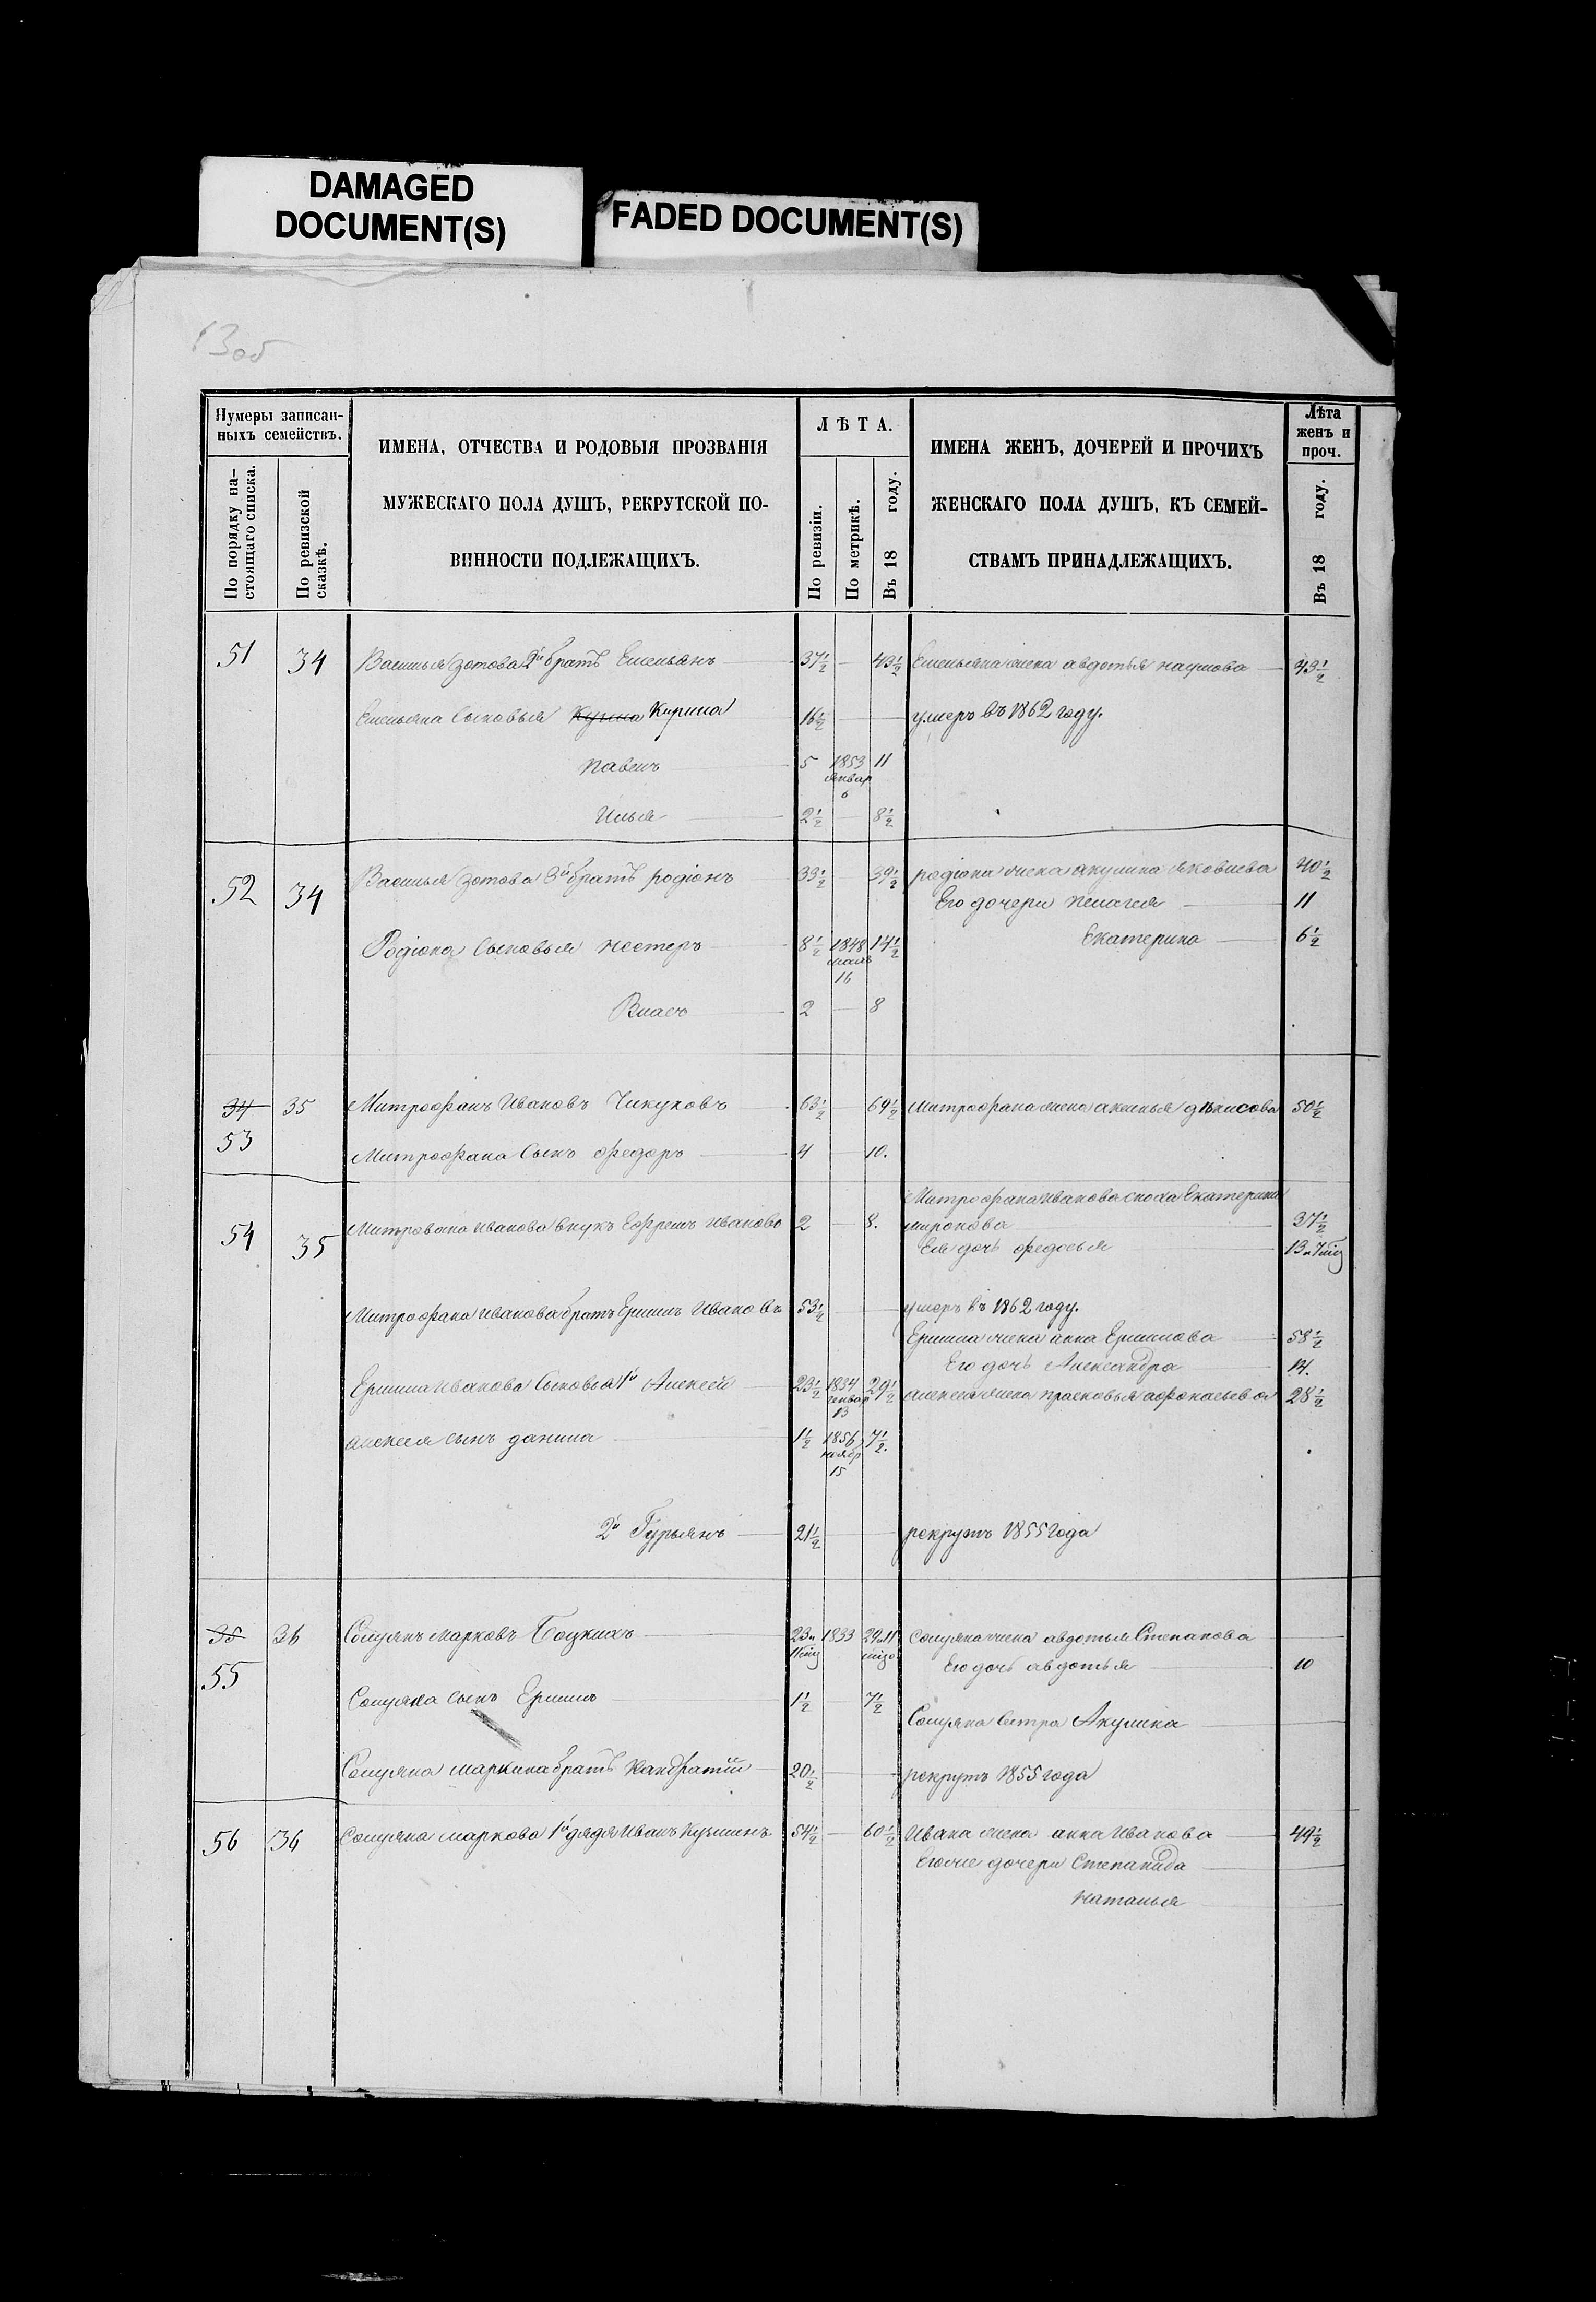 DAMAGED
DOCUMENT(S)
FADED DOCUMENT(S)
13об
Нумеры записан-
ныхъ семействъ.
По порядку на-
стоящаго списка.
По ревизской
сказкѣ.
ИМЕНА, ОТЧЕСТВА И РОДОВЫЯ ПРОЗВАНІЯ
МУЖЕСКАГО ПОЛА ДУШЪ, РЕКРУТСКОЙ ПО-
ВИННОСТИ ПОДЛЕЖАЩИХЪ.
ЛѢТА.
По ревизіи.
По метрикѣ.
Въ 18 году.
ИМЕНА ЖЕНЪ, ДОЧЕРЕЙ И ПРОЧИХЪ
ЖЕНСКАГО ПОЛА ДУШЪ, КЪ СЕМЕЙ-
СТВАМЪ ПРИНАДЛЕЖАЩИХЪ.
Лѣта
женъ и
проч.
Въ 18 году.
51 34 Василья Зотова 2й братъ Емельянъ 37½ — 43½ Емельяна жена авдотья наумова 43½
Емельяна Сыновья Кузма Кирила 16½ умеръ въ 1862 году.
Павелъ 5 1853 11
январ
6
Илья 2½ — 8½
52 34 Василья Зотова 3й братъ родіонъ 33½ 39½ родіона жена акулина яковлева 40½
Его дочери пелагея 11
Родіона Сыновья нестеръ 8½ 1848 14½ Екатерина 6½
16
Власъ 2 — 8
34 35 Митрофанъ Ивановъ Чикуховъ 63½ — 69½ Митрофана жена аксинья дѣнисова 50½
53
Митрофана Сынъ федоръ 4 — 10.
Митрофана иванова сноха Екатерина
54 35 Митрована иванова внукъ Ефремъ Иванова 2 — 8. миронова 37½
Ея дочь федосья 13 и 7 мѣц
Митрофана иванова братъ Ермилъ Ивановъ 53½ умеръ въ 1862 году.
Ермила жена анна Ермилова 58½
Его дочь Александра 14.
Ермила иванова Сыновья 1й Алексей 23½ 1834 29½ алексея жена прасковья афонасьева 28½
генвар
13
алексея сынъ данила 1½ 1856 7½.
ноябр
15
2й Гурьянъ 21½ рекрутъ 1855 года
35 36 марковъ Боцкихъ 23 и 1833 29 и 11 жена авдотья Степанова
11 мѣц мѣцо
55 Его дочь авдотья 10
сынъ Ермилъ 1½ 7½
Сестра Акулина
маркина братъ Кандратій 20½ рекрутъ 1855 года
56 36 маркова 1й дядя Иванъ Кузминъ 54½ — 60½ Ивана жена анна Иванова 49½
Егоже дочери Степанида
Наталья